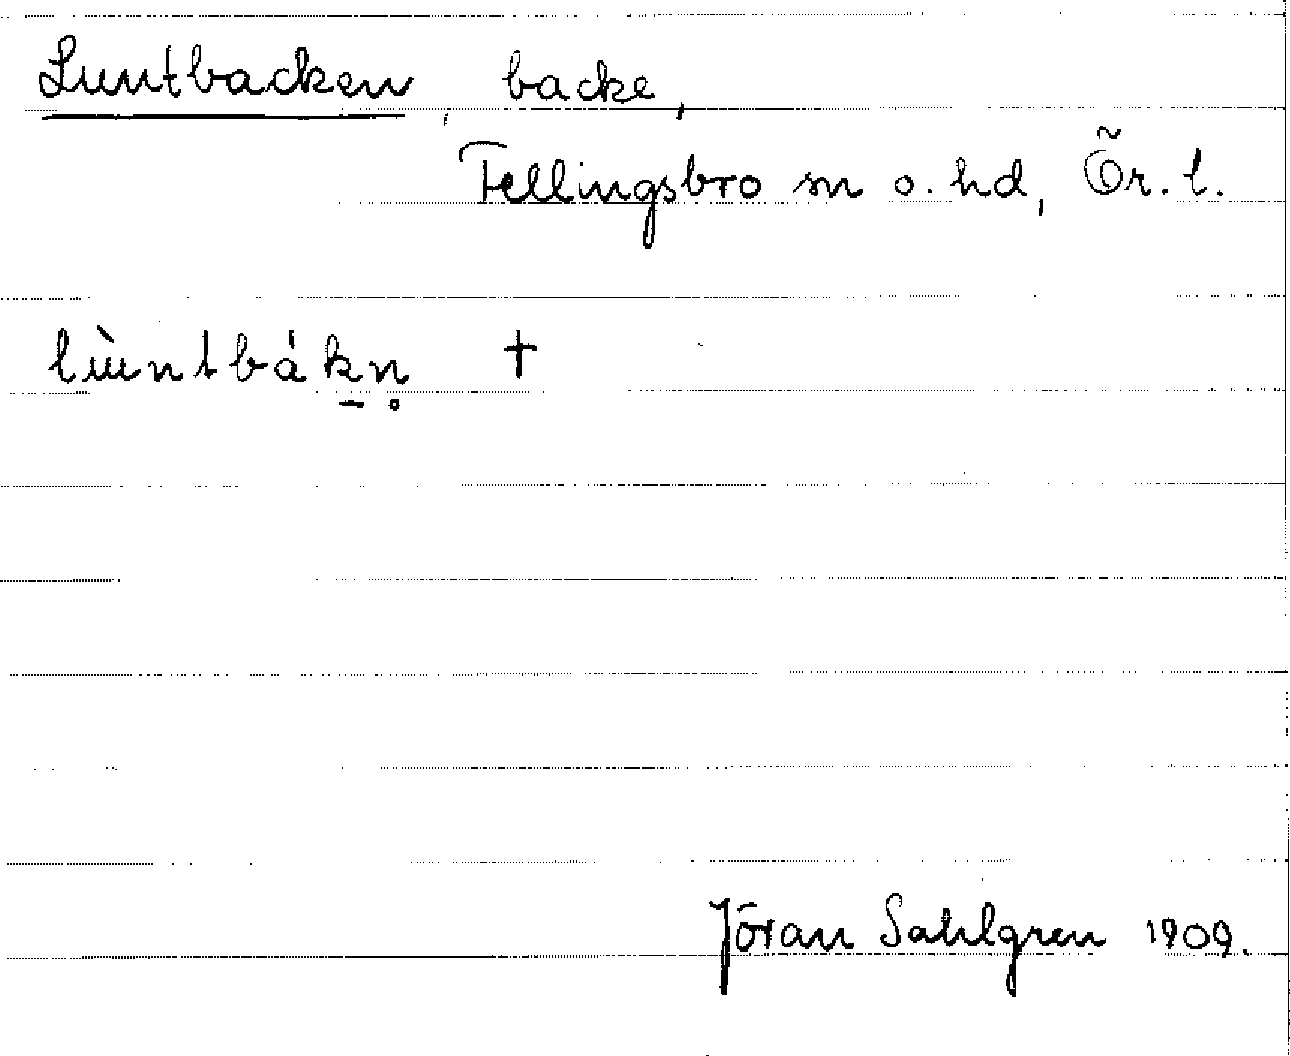 Luntbacken, backe,
Fellingsbro sn o. hd, Ör. l.
lùntbákn̥ †
Jöran Sahlgren 1909.